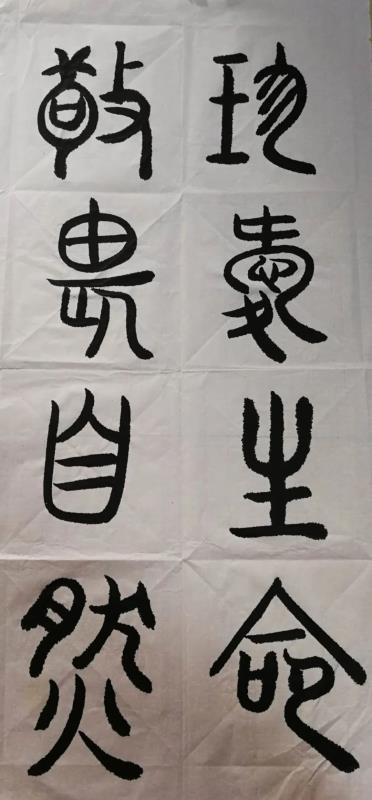 珍愛生命
敬畏自然